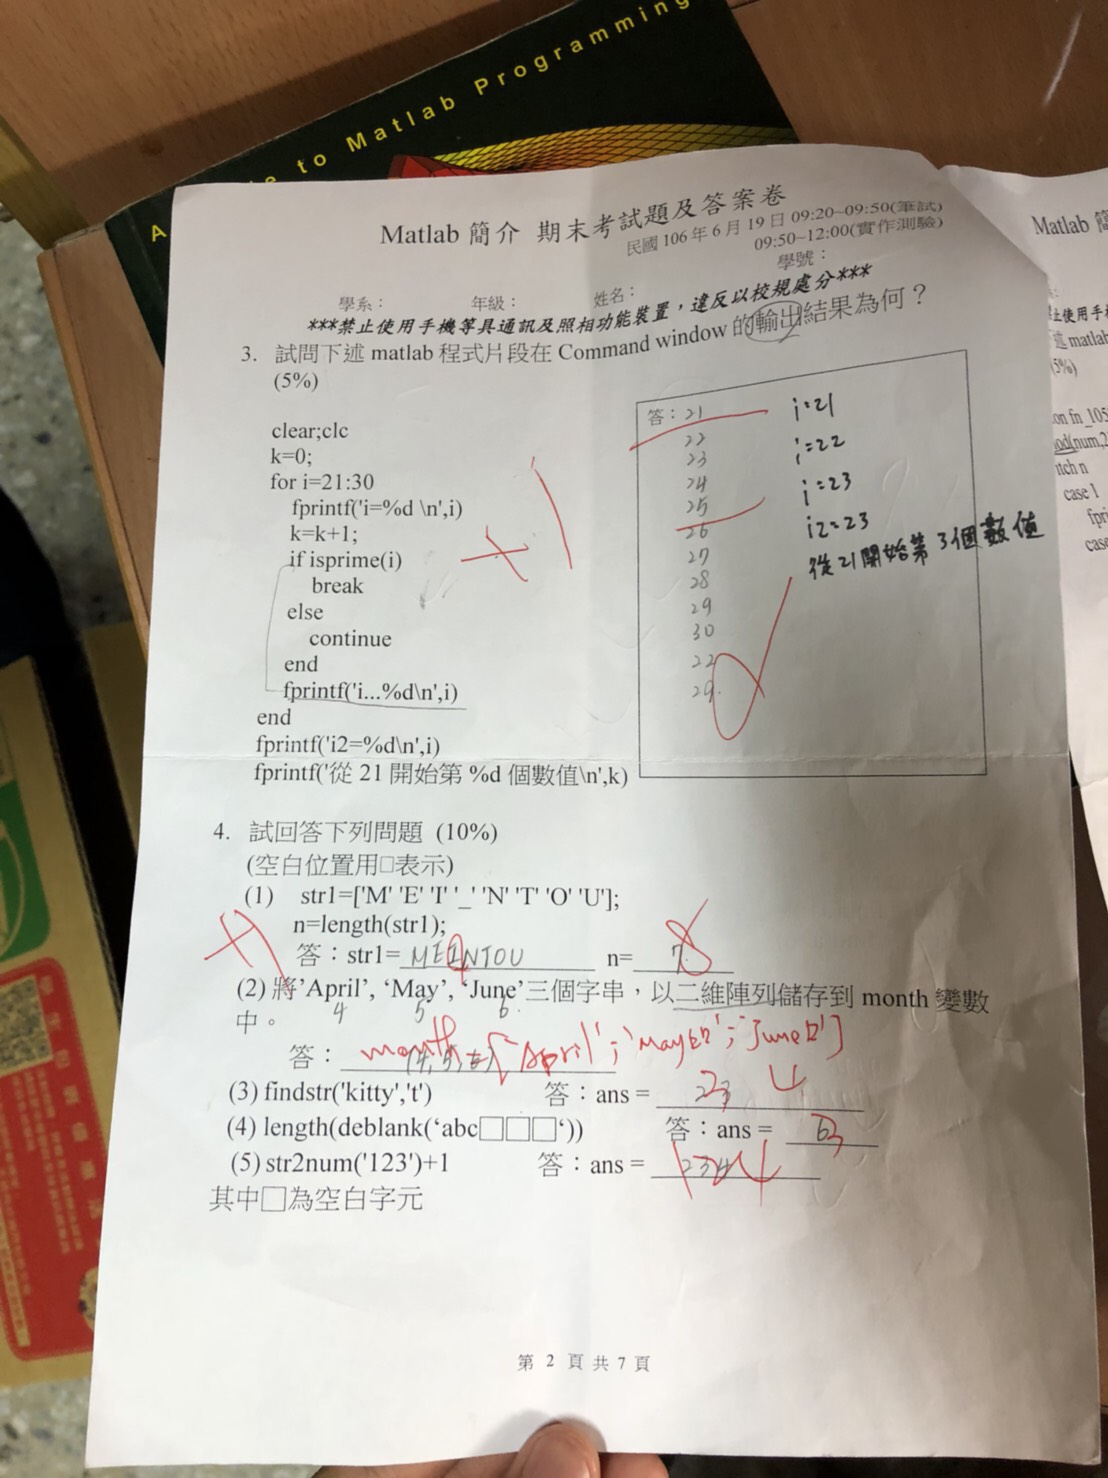 e to Matlab Programming
A
Matlab 簡介 期末考試題及答案卷
民國 106 年 6 月 19 日 09:20~09:50(筆試)
09:50~12:00(實作測驗)
學號：
學系： 年級： 姓名：
***禁止使用手機等具通訊及照相功能裝置，違反以校規處分***
3. 試問下述 matlab 程式片段在 Command window 的輸出結果為何？
(5%)
clear;clc
k=0;
for i=21:30
fprintf('i=%d \n',i)
k=k+1;
if isprime(i)
break
else
continue
end
fprintf('i...%d\n',i)
end
fprintf('i2=%d\n',i)
fprintf('從 21 開始第 %d 個數值\n',k)
+1
答：21
22
23
24
25
26
27
28
29
30
22
29.
i=21
i=22
i=23
i2=23
從21開始第3個數值
4. 試回答下列問題 (10%)
(空白位置用□表示)
(1) str1=['M' 'E' 'I' '_' 'N' 'T' 'O' 'U'];
n=length(str1);
+1
答：str1= MEINTOU n= 7 8
(2) 將'April', 'May', 'June'三個字串，以二維陣列儲存到 month 變數
4 5 6
中。
答： month=['April';'May□□';'June□']
(3) findstr('kitty','t') 答：ans = 23 4
(4) length(deblank('abc□□□')) 答：ans = 6 3
(5) str2num('123')+1 答：ans = 234 124
其中□為空白字元
第 2 頁 共 7 頁
Matlab 簡
止使用手機
述 matlab
(5%)
on fn_105
mod(num,2
itch n
case 1
fpri
case